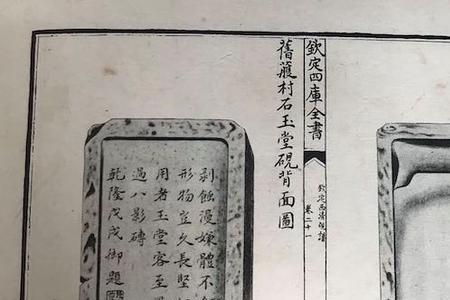 欽定四庫全書
欽定西清硯譜
卷二十一
舊蕿村石玉堂硯背面圖
剥蝕漫嫌體不
形物豈久長堅
用者玉堂客至
過八影磚
乾隆戊戌御題